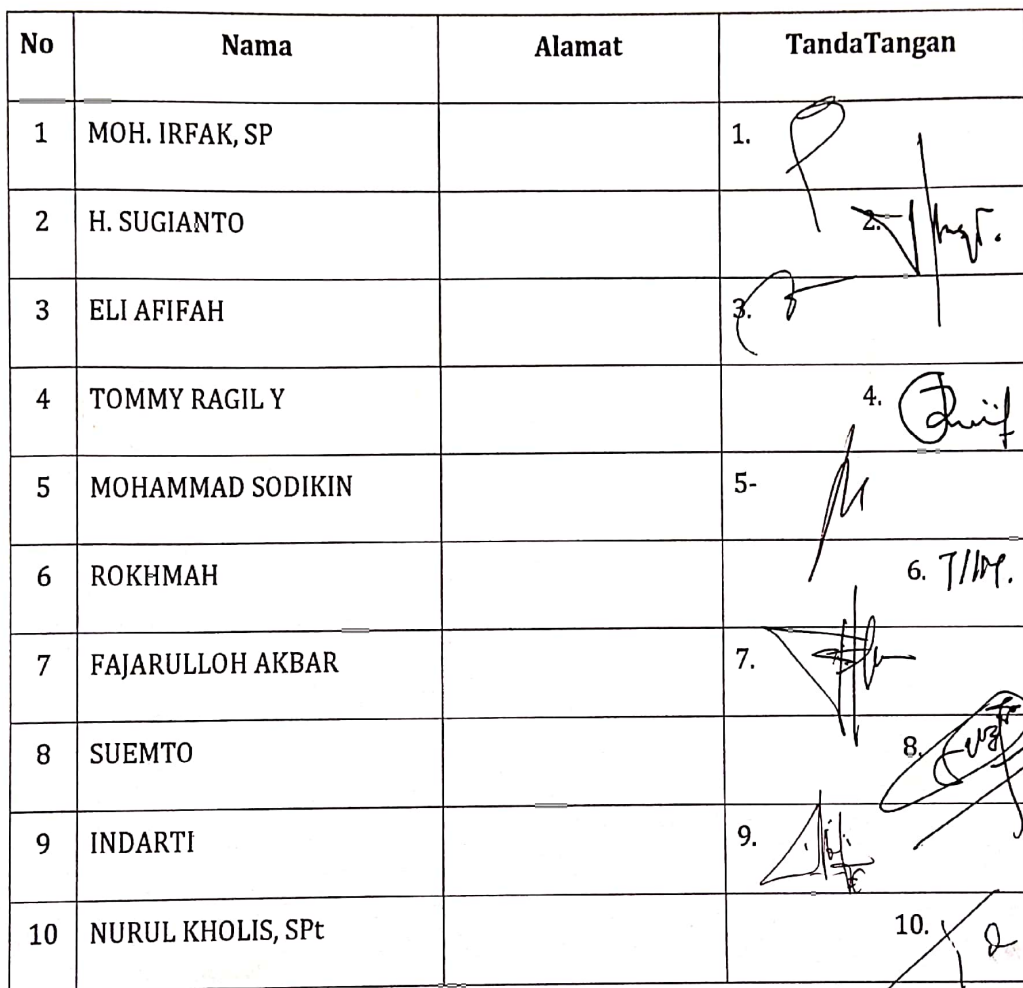 No Nama Alamat TandaTangan
1 MOH. IRFAK, SP 1.
2 H. SUGIANTO 2.
3 ELI AFIFAH 3.
4 TOMMY RAGIL Y 4.
5 MOHAMMAD SODIKIN 5-
6 ROKHMAH 6.
7 FAJARULLOH AKBAR 7.
8 SUEMTO 8.
9 INDARTI 9.
10 NURUL KHOLIS, SPt 10.